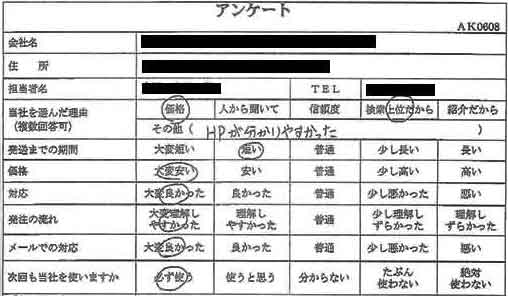 アンケート
AK0608
会社名
住 所
担当者名 TEL
当社を選んだ理由 (複数回答可) 価格 人から聞いて 信頼度 検索上位だから 紹介だから
その他 ( HPが分かりやすかった )
発送までの期間 大変短い 短い 普通 少し長い 長い
価格 大変安い 安い 普通 少し高い 高い
対応 大変良かった 良かった 普通 少し悪かった 悪い
発注の流れ 大変理解しやすかった 理解しやすかった 普通 少し理解しずらかった 理解しずらかった
メールでの対応 大変良かった 良かった 普通 少し悪かった 悪い
次回も当社を使いますか 必ず使う 使うと思う 分からない たぶん使わない 絶対使わない